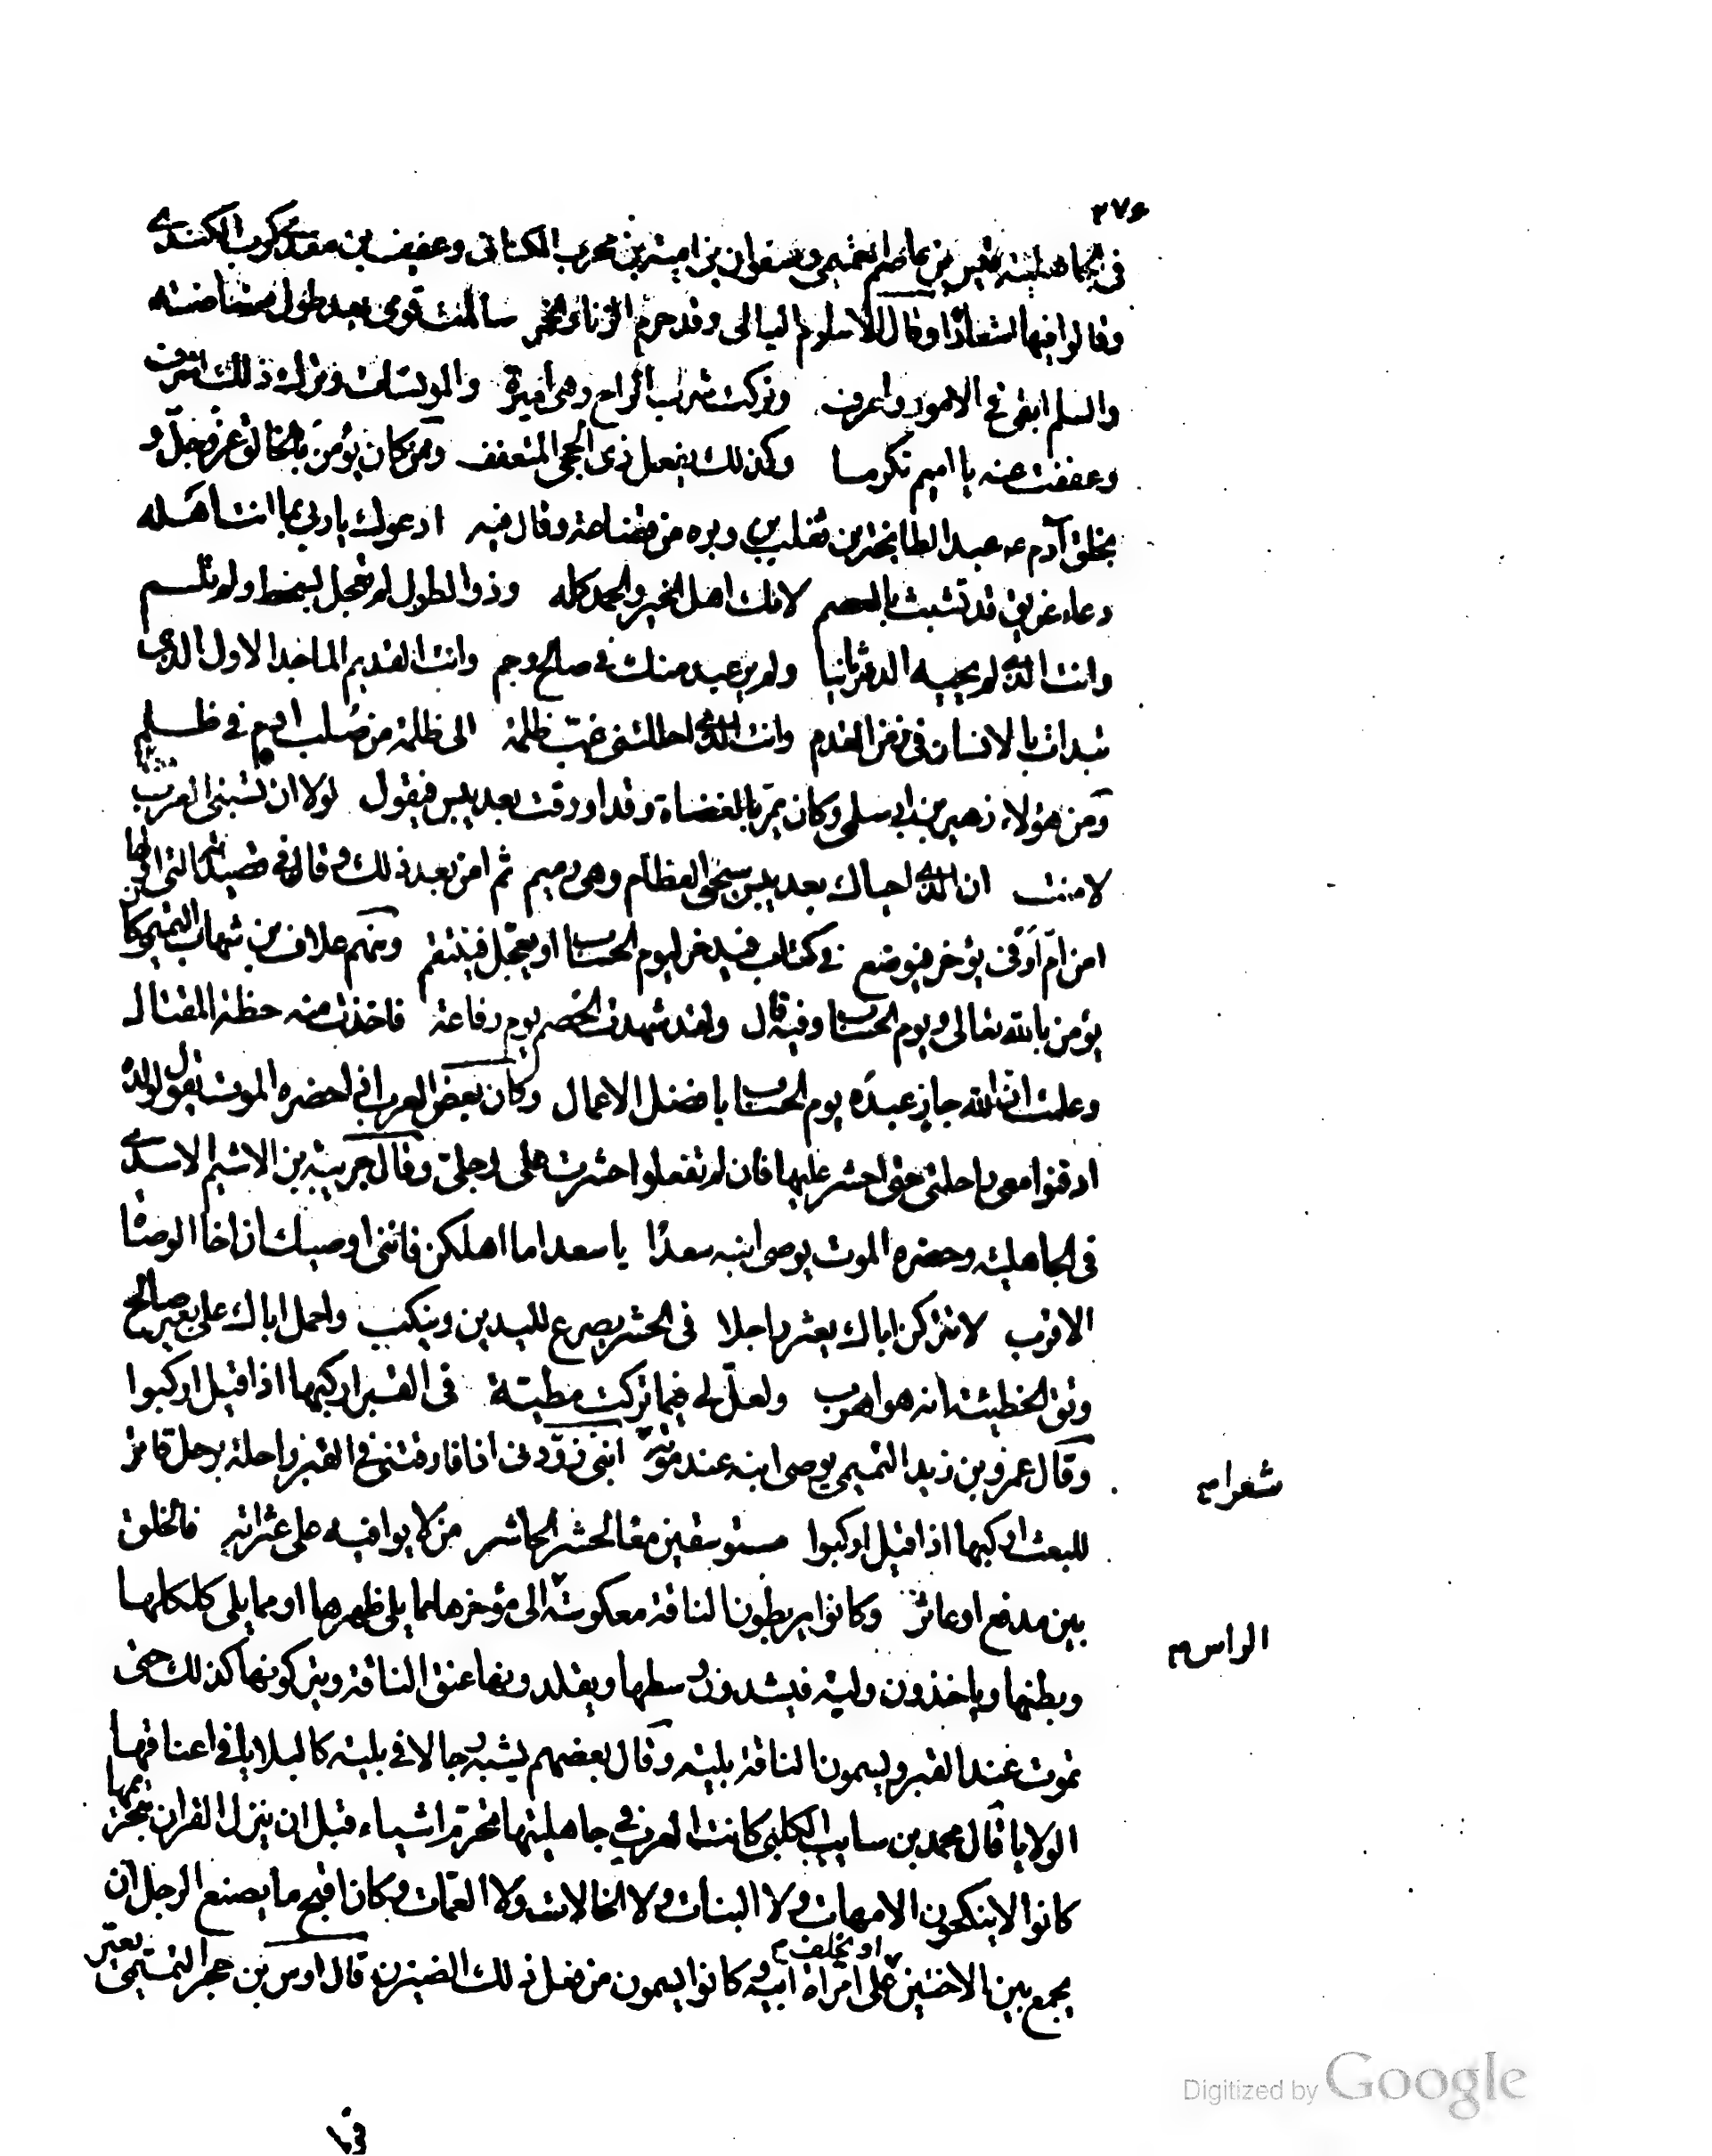 ٣٧٤
فى الجاهلية قيس بن عاصم التميمى وصفوان بن امية بن محرب الكنانى وعفيف بن معدى كرب الكندى
وقالوا فيها اشعارًا وقال الاسلوم اليالى وقد حرم الزنا والخمر سالمت قومى بعد طول مضاضة
والسلم ابقى فى الامور واعرف وتركت شرب الراح وهى اميرة والمومسات وترك ذلك اشرف
وعففت عنه يا اميم تكرما وكذلك يفعل ذى الحجى المتعفف ومن كان يؤمن بالخالق عز وجل و
بخلق آدم عم عبد الطابخة بن ثعلب بن وبره من قضاعة وقال فيه ادعوك يا ربى بما انت اهله
دعاء غريق قد تشبث بالعصم لانك اهل الخير والحمد كله وذو الطول لم تعجل بسخط ولم تلم
وانت الذى لم يحييه الدهر ثانيا ولم ير عبد منك فى صالح وجم وانت القديم الماجد الاول الذى
تبدات بالانسان فى زمن القدم وانت الذى احللتنى غيب ظلمة الى ظلمة من صلب آدم فى ظلم
ومن هؤلاء زهير بن ابى سلمى وكان يمر بالعضاة وقد اورقت بعد يبس فيقول لولا ان تسبنى العرب
لامنت ان الذى احياك بعد يبس سيحى العظام وهى رميم ثم امن بعد ذلك وقال فى قصيدته التى اولها
امن ام اوفى يؤخر فيوضع فى كتاب فيدخر ليوم الحساب او يعجل فينتقم ومنهم علاف بن شهاب التميمى كان
يؤمن بالله تعالى ويوم الحساب وفيه قال ولقد شهدت الخصم يوم رفاعة فاخذت منه خطة المقتال
وعلمت ان الله جاز عبده يوم الحساب بافضل الاعمال وكان بعض العرب اذا حضره الموت يقول لولده
ادفنوا معى راحلتى حتى احشر عليها فان لم تفعلوا حشرت على رجلى وقال جريبة بن الاشيم الاسدى
فى الجاهلية وحضره الموت يوصى ابنه سعدًا يا سعد اما اهلكن فاننى اوصيك ان اخا الوصاة
الاقرب لا تتركن اباك يعثر راجلا فى الحشر يصرع لليدين وينكب واحمل اباك على بعير صالح
وتق الخطيئة انه هو اهرب ولعل لى فيما تركت مطية فى القبر اركبها اذا قيل اركبوا
وقال عمرو بن زيد التميمى يوصى ابنه عند موته ابنى زودنى اذا فارقتنى فى القبر راحلة برحل قاتر
للبعث اركبها اذا قيل اركبوا مستوسقين معا لحشر الحاشر من لا يوافيه على عثراته فالخلق
بين مدفع او عاثر وكانوا يربطون الناقة معكوسة الى مؤخرها مما يلى ظهرها او مما يلى كلكلها
وبطنها وياخذون ولية فيشدون وسطها ويقلدونها عنق الناقة ويتركونها كذلك حتى
تموت عند القبر ويسمون الناقة بلية وقال بعضهم يشبه رجالا فى بلية كالبلايا فى اعناقها
الولايا قال محمد بن سايب الكلبى كانت العرب فى جاهليتها تحرم اشياء قبل ان ينزل القران بتحريمها
كانوا لا ينكحون الامهات ولا البنات ولا الخالات ولا العمات وكان اقبح ما يصنع الرجل ان
يجمع بين الاختين او يخلف على امراة ابيه وكانوا يسمون من فعل ذلك الضيزن قال اوس بن حجر التميمى يعير
شعرا م
الراس م